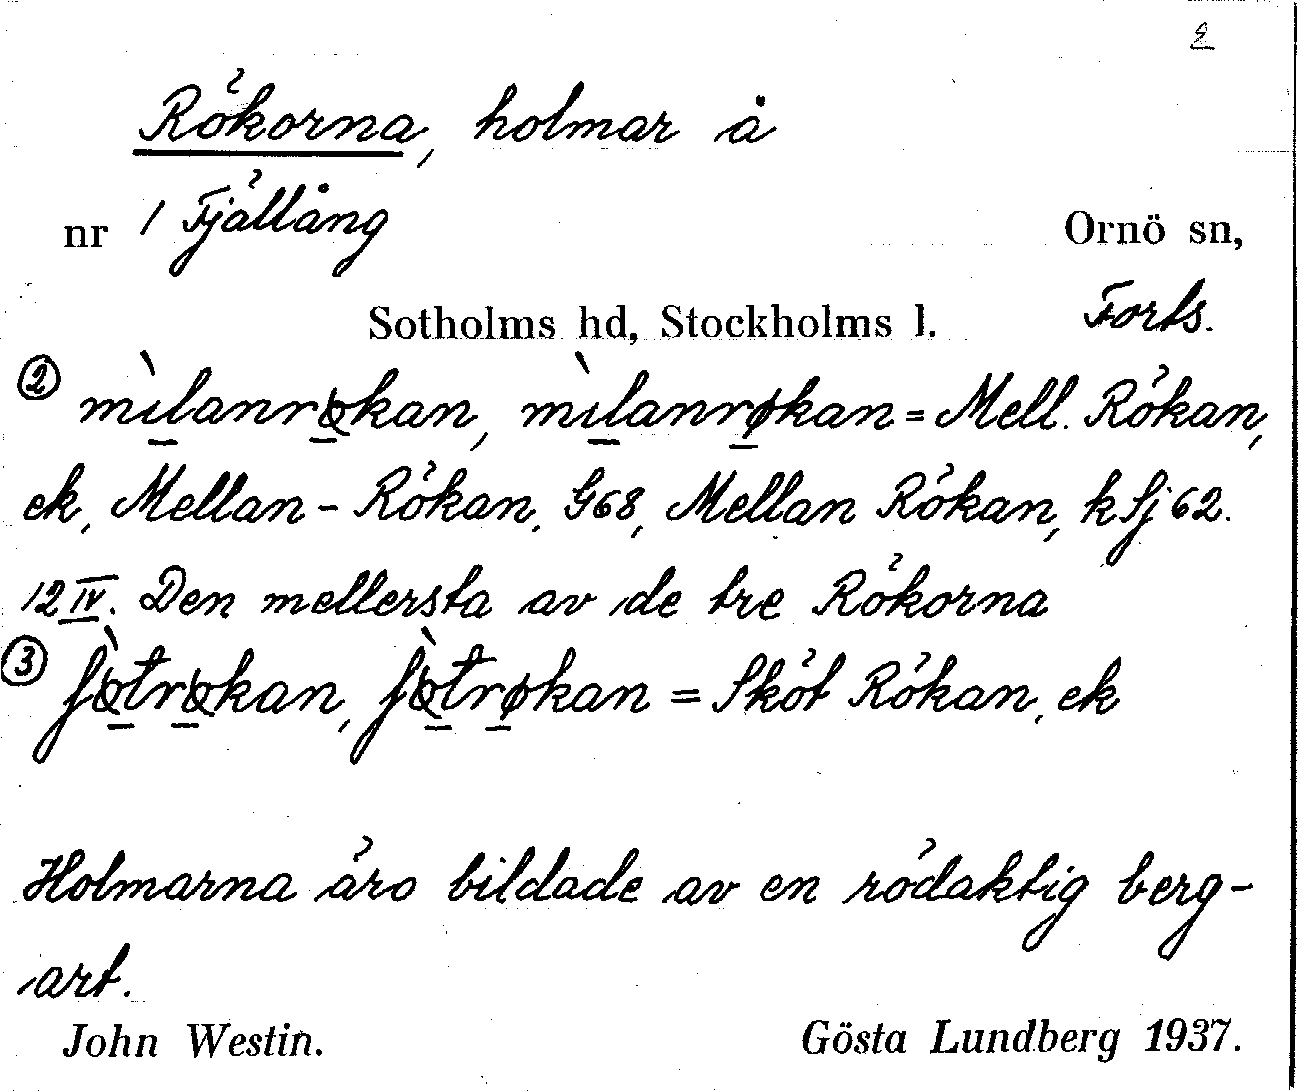 2
Rökorna, holmar å
nr 1 Fjällång Ornö sn,
Sotholms hd, Stockholms l. Forts.
② mìlanrøkan, mìlanrøkan = Mell. Rökan,
ek, Mellan-Rökan, G68, Mellan Rökan, kSj 62.
12 IV. Den mellersta av de tre Rökorna
③ = Sköt Rökan, ek
Holmarna äro bildade av en rödaktig berg-
art.
John Westin. Gösta Lundberg 1937.